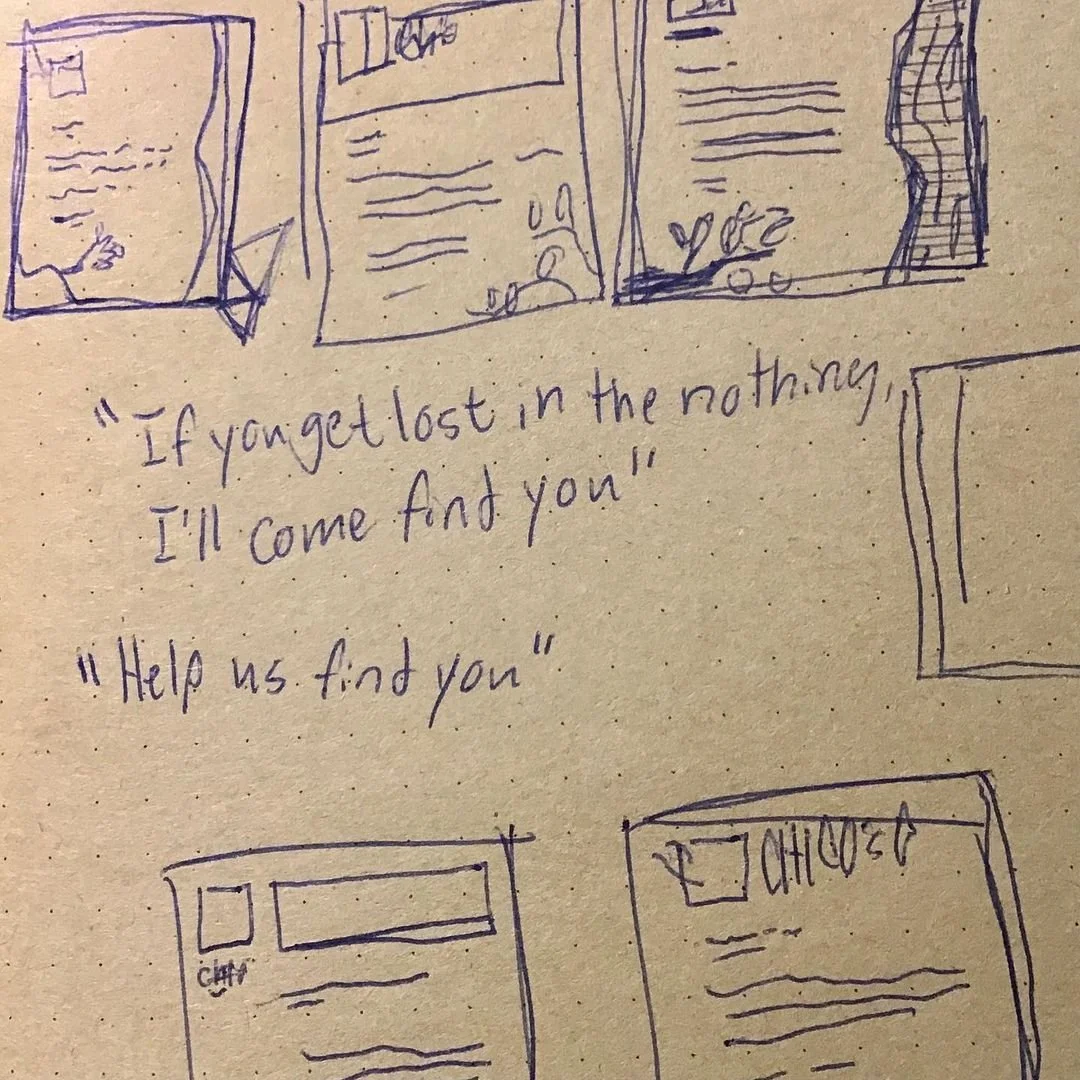 "If you get lost in the nothing,
I'll come find you"
"Help us find you"